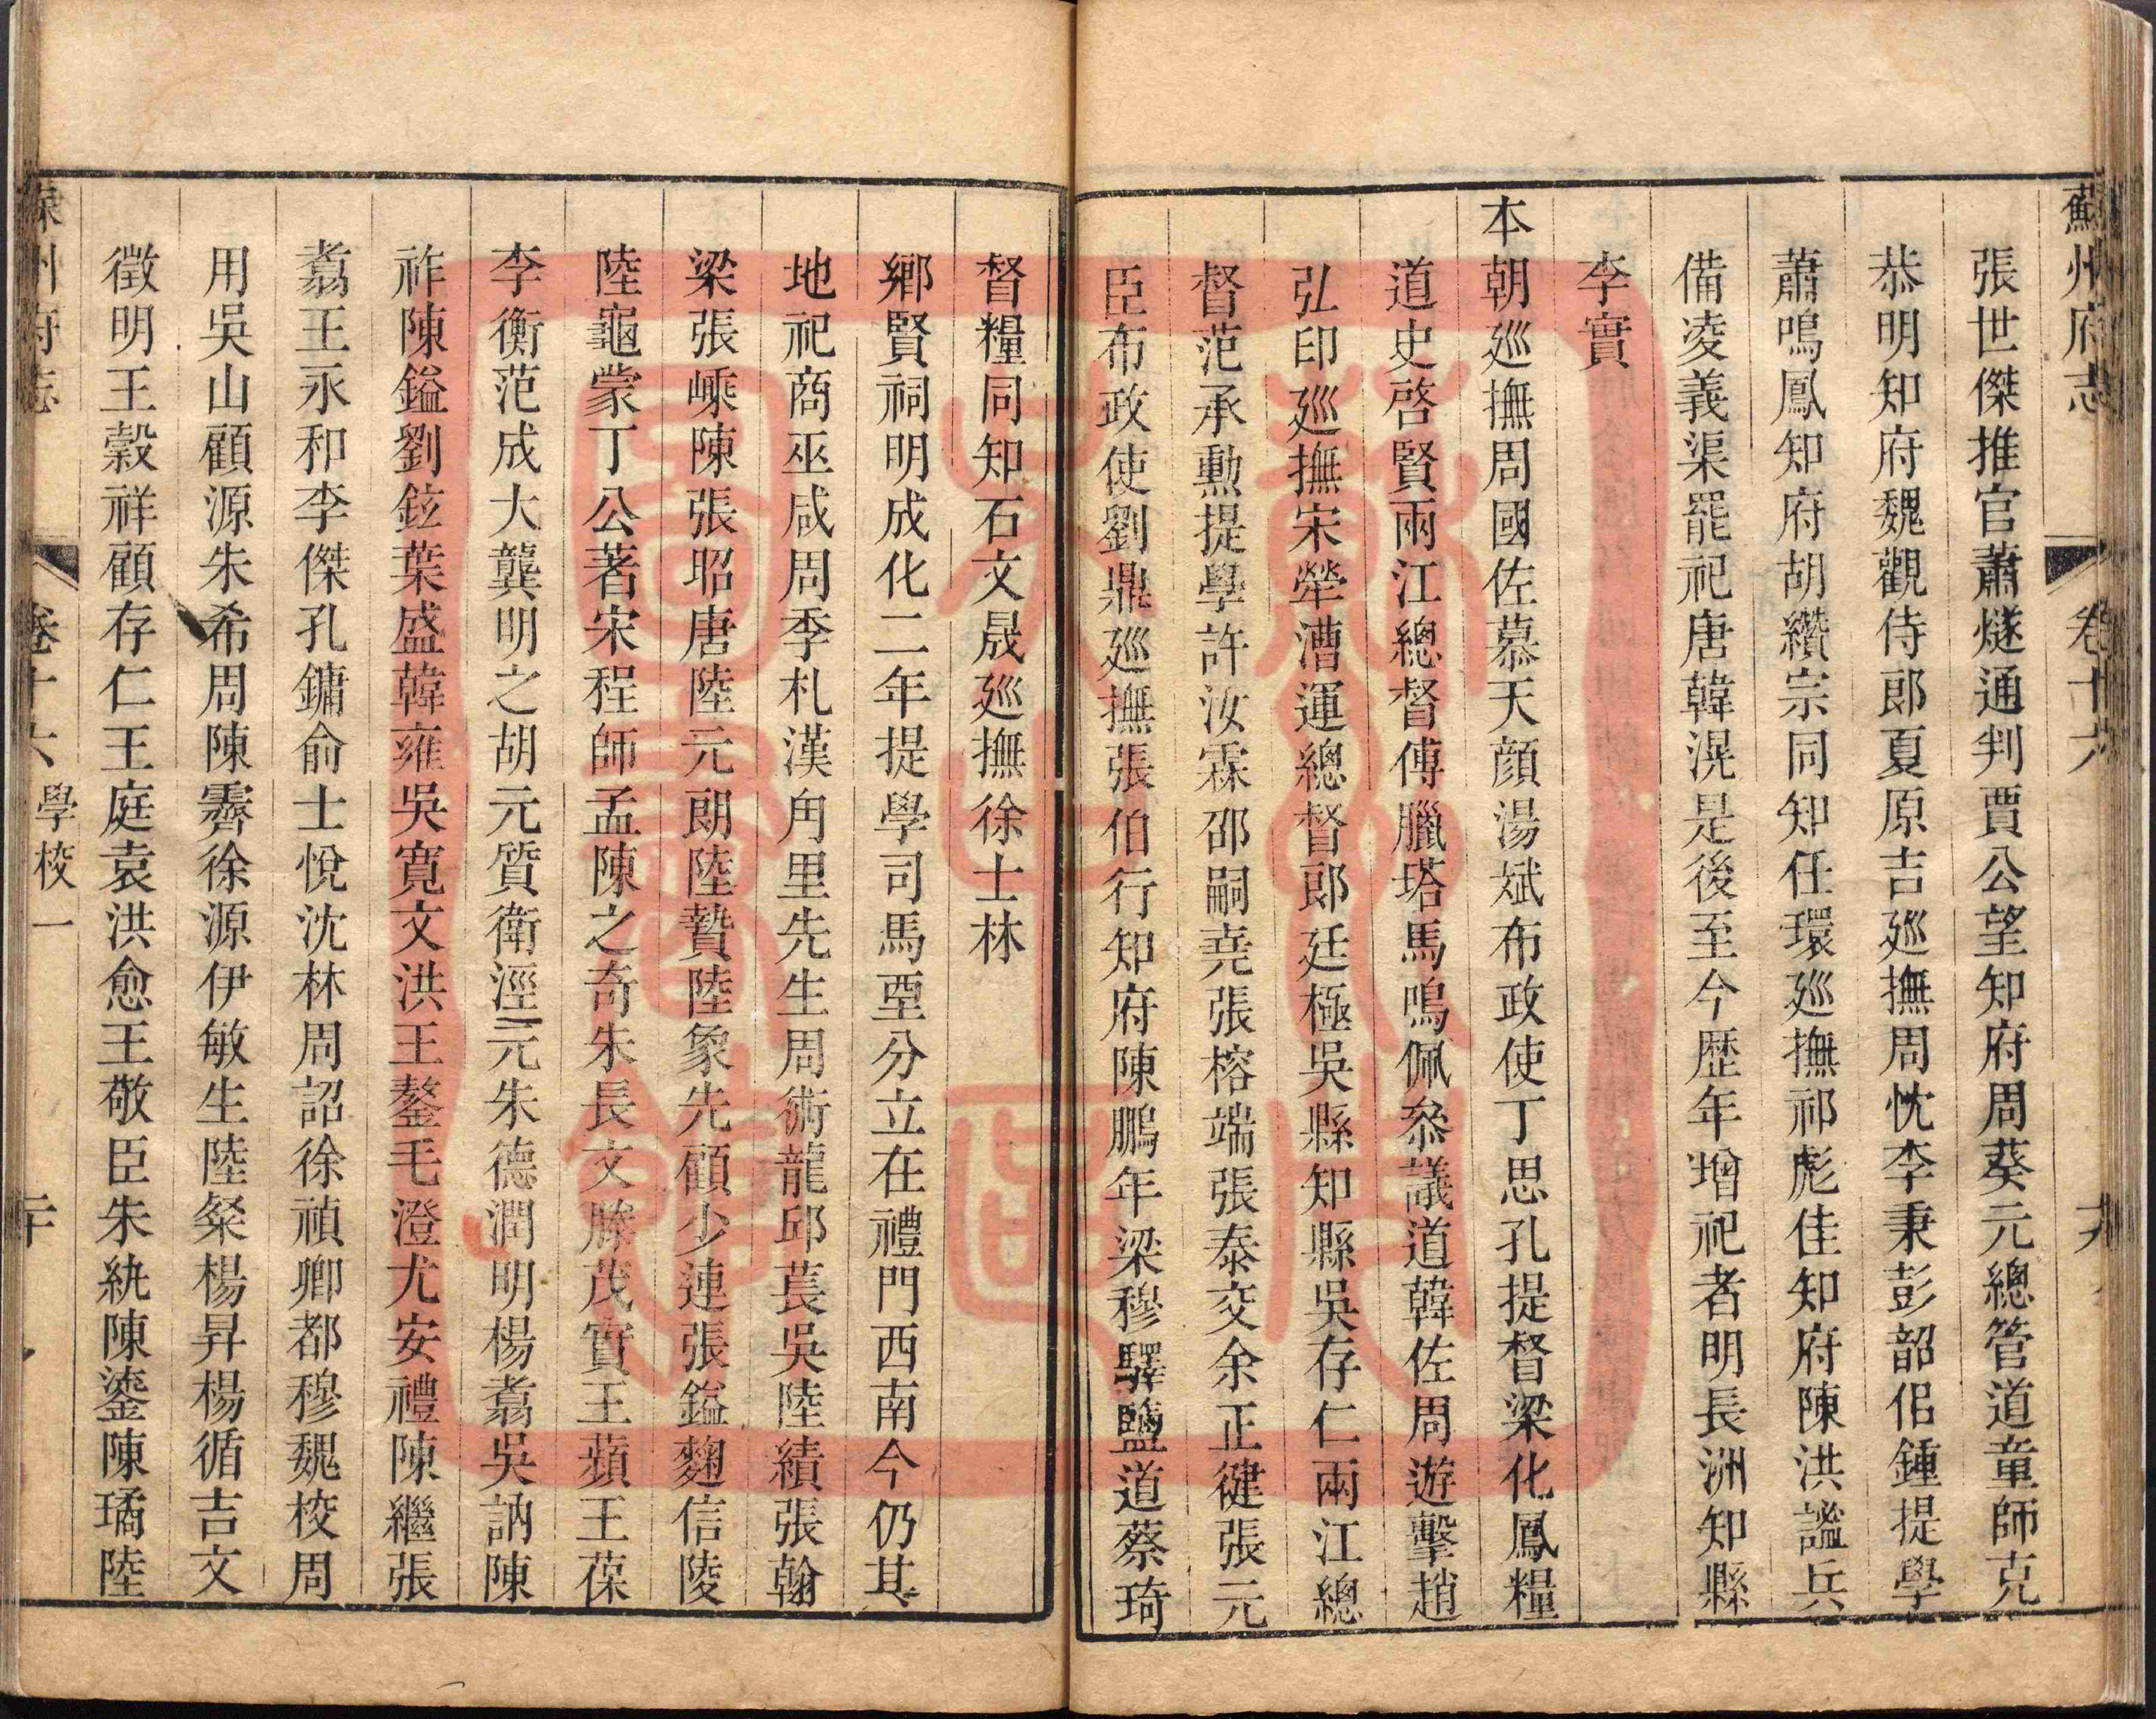 蘇州府志 卷十六
張世傑推官蕭燧通判賈公望知府周葵元總管道童師克
恭明知府魏觀侍郎夏原吉廵撫周忱李秉彭韶佀鍾提學
蕭鳴鳳知府胡纘宗同知任環廵撫祁彪佳知府陳洪謐兵
備凌義渠罷祀唐韓滉是後至今歷年增祀者明長洲知縣
李實
本朝廵撫周國佐慕天顔湯斌布政使丁思孔提督梁化鳳糧
道史啓賢兩江總督傅臘塔馬鳴佩叅議道韓佐周遊擊趙
弘印廵撫宋犖漕運總督郎廷極吳縣知縣吳存仁兩江總
督范承勲提學許汝霖邵嗣堯張榕端張泰交余正健張元
臣布政使劉鼎廵撫張伯行知府陳鵬年梁穆驛鹽道蔡琦
督糧同知石文晟廵撫徐士林
鄉賢祠明成化二年提學司馬垔分立在禮門西南今仍其
地祀商巫咸周季札漢甪里先生周術龍邱萇吳陸績張翰
梁張嵊陳張昭唐陸元朗陸贄陸象先顧少連張鎰麴信陵
陸龜蒙丁公著宋程師孟陳之奇朱長文滕茂實王蘋王葆
李衡范成大龔明之胡元質衛涇元朱德潤明楊翥吳訥陳
祚陳鎰劉鉉葉盛韓雍吳寛文洪王鏊毛澄尤安禮陳繼張
翥王永和李傑孔鏞俞士悅沈林周詔徐禎卿都穆魏校周
用吳山顧源朱希周陳霽徐源伊敏生陸粲楊昇楊循吉文
徵明王穀祥顧存仁王庭袁洪愈王敬臣朱紈陳鎏陳璚陸
州府志 卷十六 學校一 二十